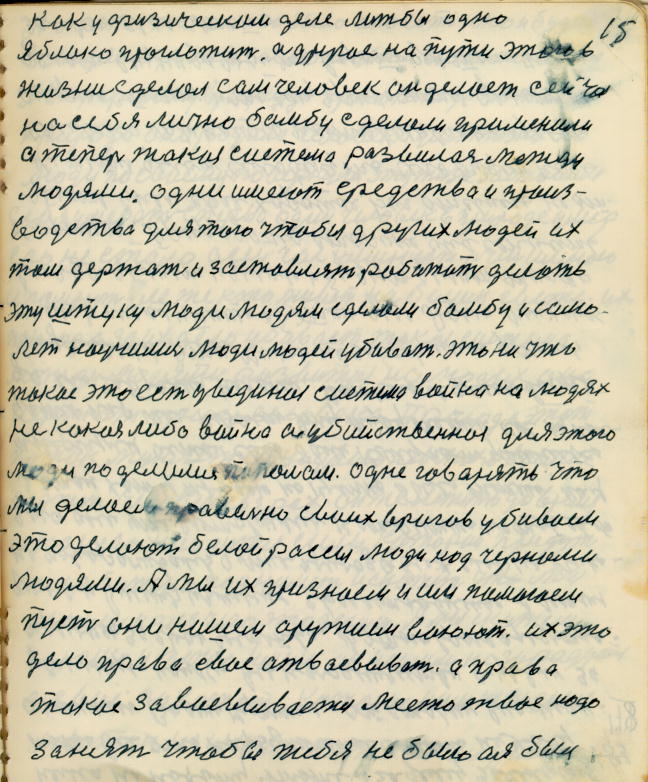 15
Как у физическом деле литбы одно
яблоко проглотит. а другое на пути этого в
жизни сделал сам человек он делает сейчас
на себя лично бомбу сделали применили
а тепер такая система развилая между
людями. одни имеют средства и произ-
водства для того чтобы других людей их
там держат и заставлят работать делоть
эту штуку люди людям сделали бомбу и само-
лет научили люди людей убиват. Это ни что
такое это ест увединая система война на людях
не какая либо война а убийственная для этого
люди поделили пополам. одне говарять что
мы делаем правельно своих врогов убиваем
это делоют белой рассы люди над черноми
людями. А мы их признаем и им помогаем
пуст они нашем оружием воюют. их это
дело права свое отваевыват. а права
такое заваевывается место твое надо
занят чтобы тебя не было а я был.